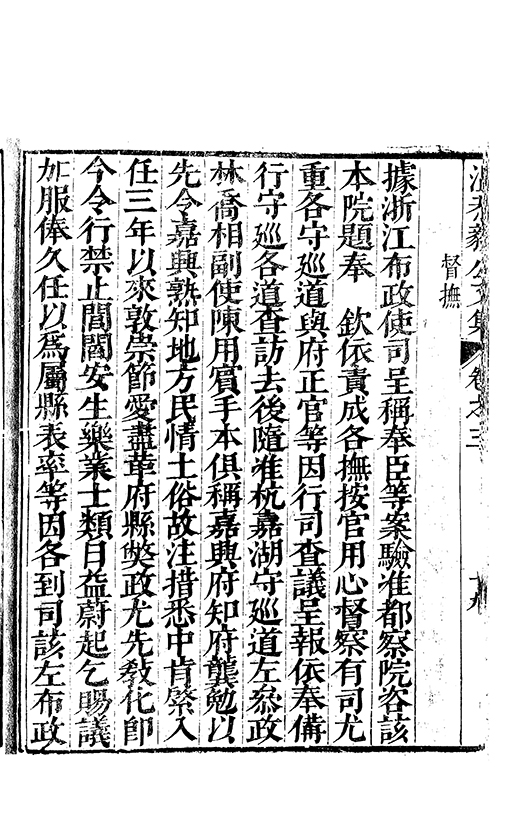 溫恭毅公文集 卷之三 十九
督撫
據浙江布政使司呈稱奉臣等案驗准都察院咨該
本院題奉 欽依責成各撫按官用心督察有司尤
重各守巡道與府正官等因行司查議呈報依奉備
行守巡各道查訪去後隨准杭嘉湖守巡道左叅政
林喬相副使陳用賓手本俱稱嘉興府知府龔勉以
先令嘉興熟知地方民情土俗故注措悉中肯綮入
任三年以來敦崇節愛盡革府縣獘政尤先敎化即
今令行禁止閭閻安生樂業士類日益蔚起乞賜議
加服俸久任以爲屬縣表率等因各到司該左布政